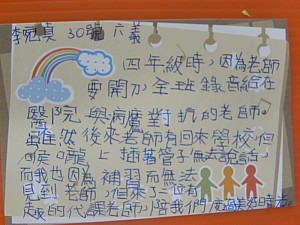 李冠真 30號 六義
四年級時,因為老師
要開刀,全班錄音給在
醫院與病魔對抗的老師。
雖然後來老師有回來學校,但
喉嚨上插著管子無法說話,
而我也因為補習而無法
見到老師,但來了一位有
趣的代課老師,陪我們度過美好時光